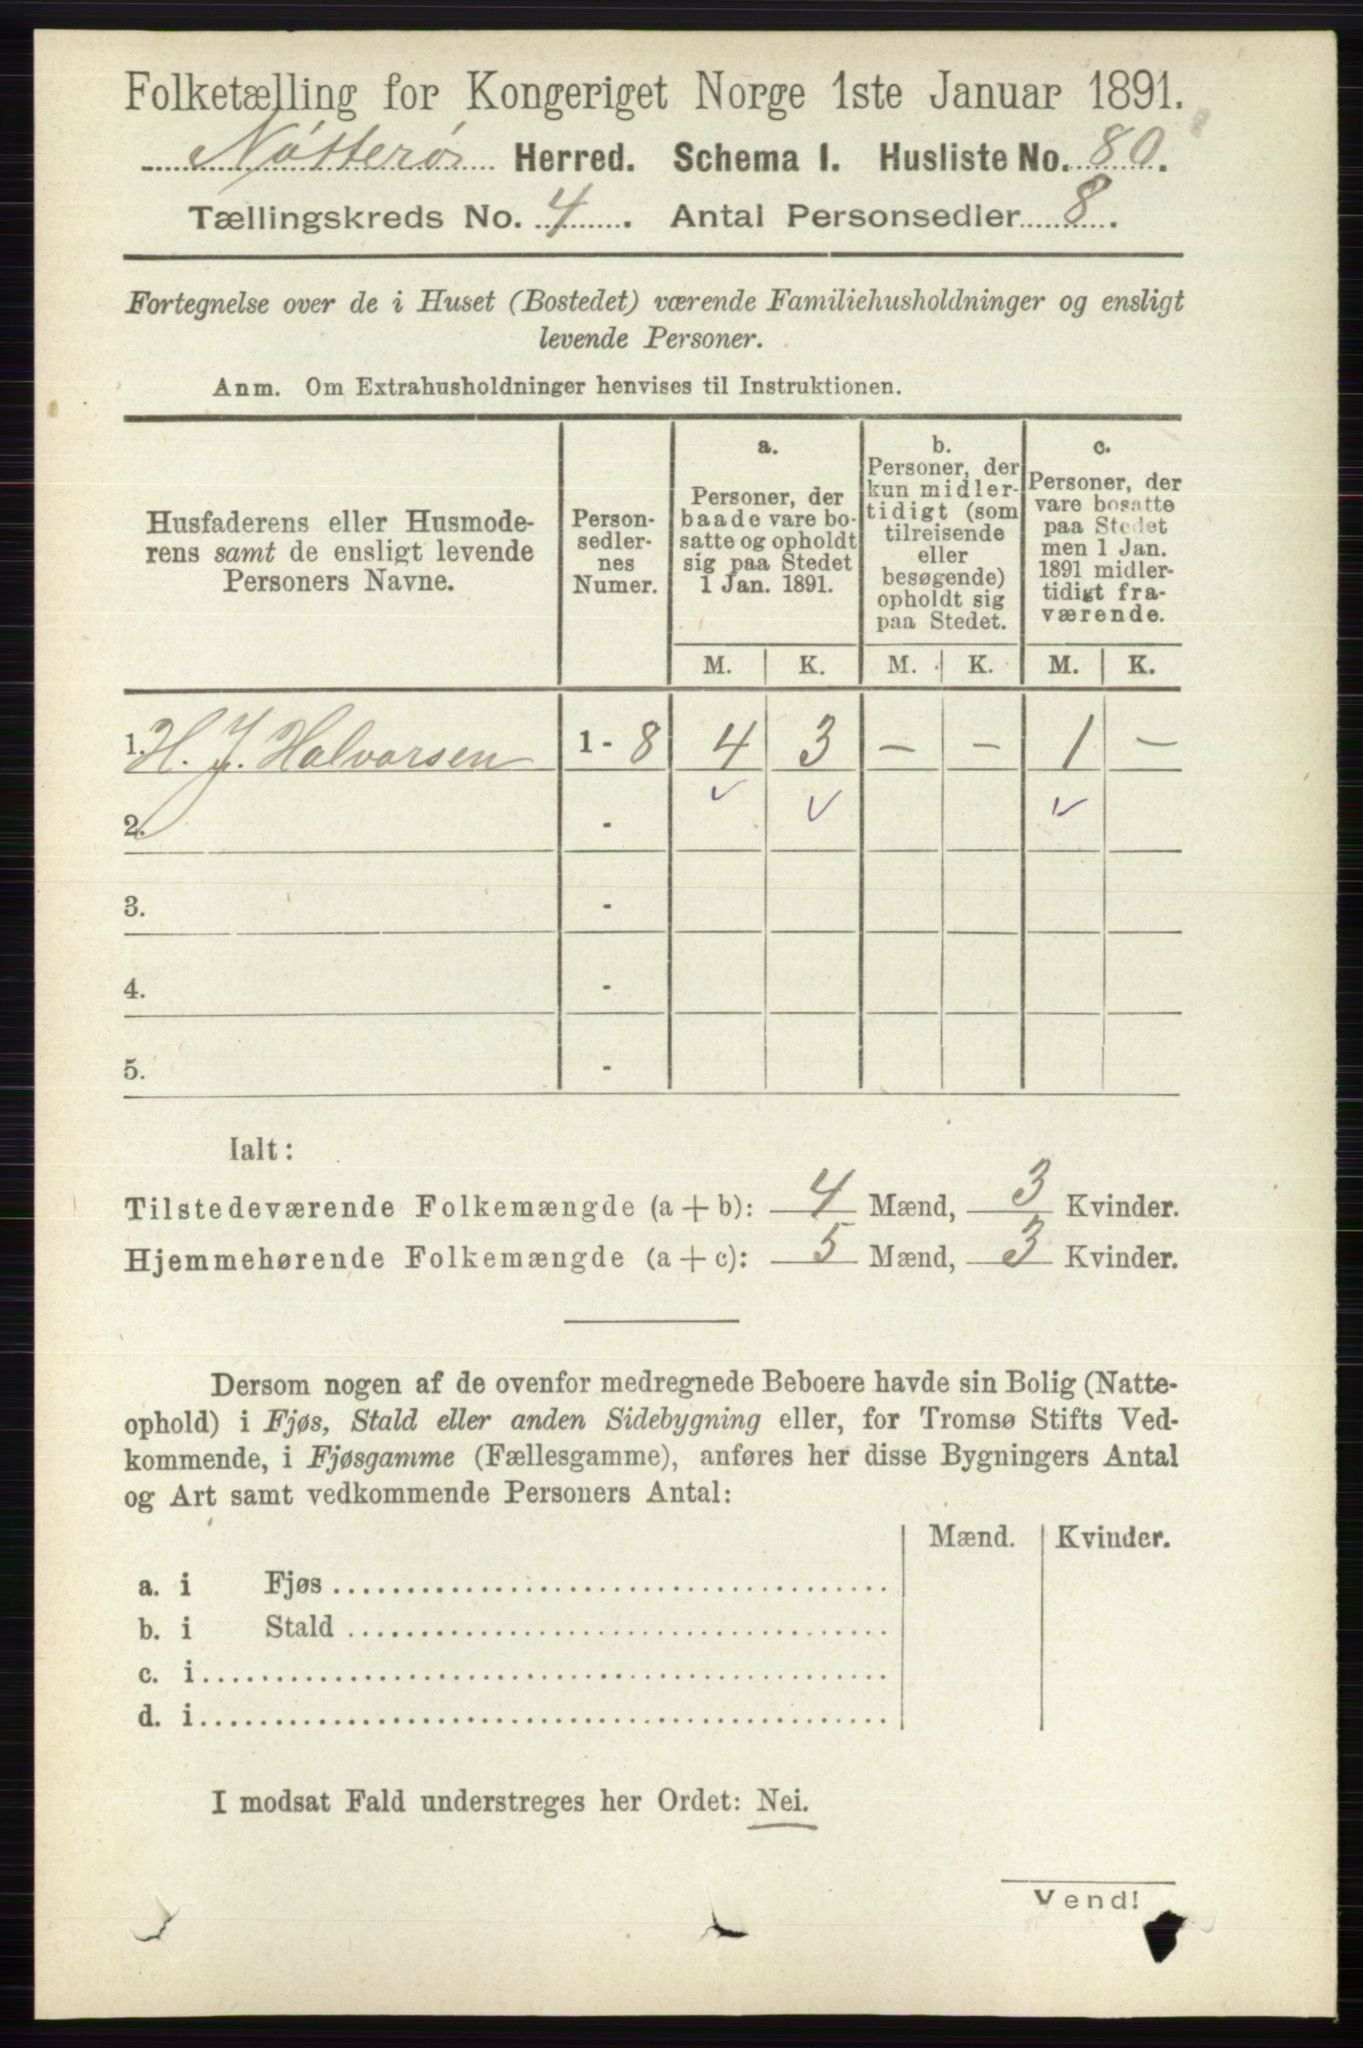 Folketælling for Kongeriget Norge 1ste Januar 1891.
Nøtterø Herred. Schema I. Husliste No. 80.
Tællingskreds No. 4. Antal Personsedler 8.
Fortegnelse over de i Huset (Bostedet) værende Familiehusholdninger og ensligt
levende Personer.
Anm. Om Extrahusholdninger henvises til Instruktionen.
Husfaderens eller Husmode-
rens samt de ensligt levende
Personers Navne.
Person-
sedler-
nes
Numer.
a.
Personer, der
baade vare bo-
satte og opholdt
sig paa Stedet
1 Jan. 1891.
b.
Personer, der
kun midler-
tidigt (som
tilreisende
eller
besøgende)
opholdt sig
paa Stedet.
c.
Personer, der
vare bosatte
paa Stedet
men 1 Jan.
1891 midler-
tidigt fra-
værende.
M. K. M. K. M. K.
1. H. J. Halvorsen 1 - 8 4 3 – – 1 –
2. - ✓ ✓ ✓
3. -
4. -
5. -
Ialt:
Tilstedeværende Folkemængde (a + b): 4 Mænd, 3 Kvinder.
Hjemmehørende Folkemængde (a + c): 5 Mænd, 3 Kvinder.
Dersom nogen af de ovenfor medregnede Beboere havde sin Bolig (Natte-
ophold) i Fjøs, Stald eller anden Sidebygning eller, for Tromsø Stifts Ved-
kommende, i Fjøsgamme (Fællesgamme), anføres her disse Bygningers Antal
og Art samt vedkommende Personers Antal:
Mænd. Kvinder.
a. i Fjøs
b. i Stald
c. i
d. i
I modsat Fald understreges her Ordet: Nei.
Vend!